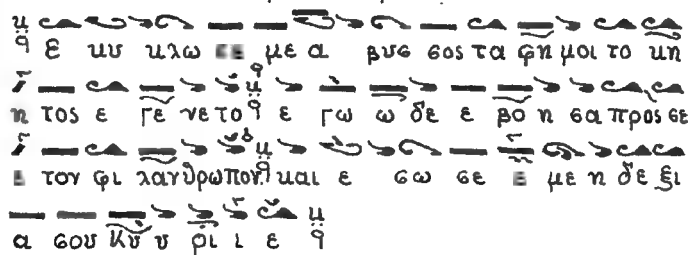 Ε κυ κλω σε με α βυσ σος τα φη μοι το κη
η τος ε γε νε το ε γω ω δε ε βο η σα προς σε
ε τον φι λανθρωπον και ε σω σε ε με η δε ξι
α σου Κυ υ ρι ι ε